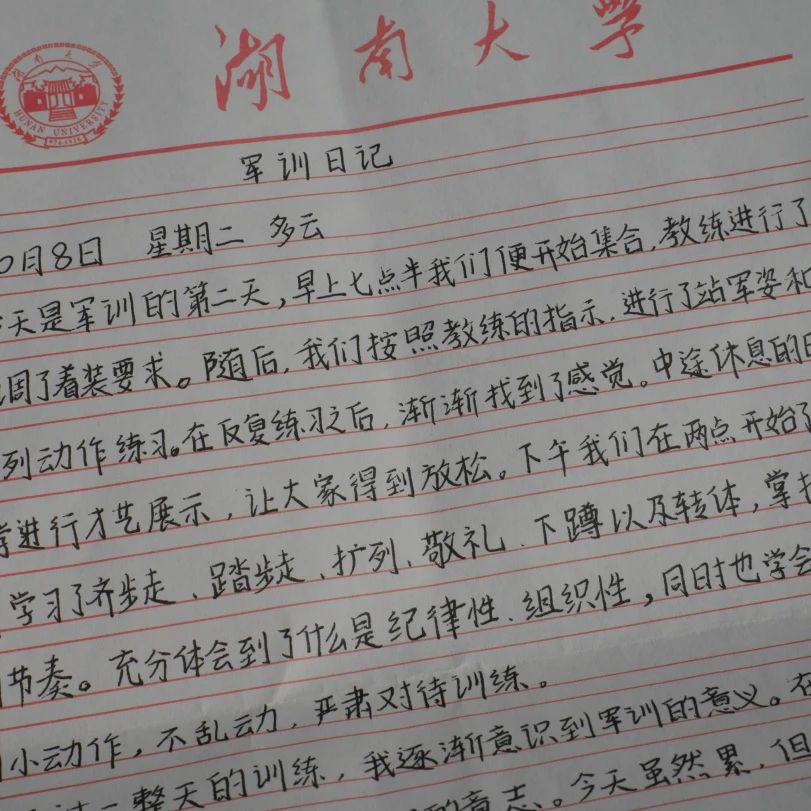 湖南大学
湖南大学
HUNAN UNIVERSITY
军训日记
0月8日 星期二 多云
天是军训的第二天,早上七点半我们便开始集合,教练进行了
调了着装要求。随后,我们按照教练的指示,进行了站军姿和
列动作练习。在反复练习之后,渐渐找到了感觉。中途休息的
进行才艺展示,让大家得到放松。下午我们在两点开始了
学习了齐步走、踏步走、扩列、敬礼、下蹲以及转体,掌
节奏。充分体会到了什么是纪律性、组织性,同时也学会
小动作,不乱动力,严肃对待训练。
一整天的训练,我逐渐意识到军训的意义。在
意志。今天虽然累,但